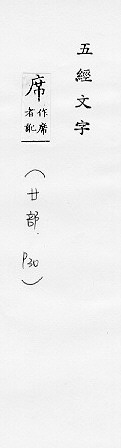 五經文字
席
作席
者訛
(廿部. P30)